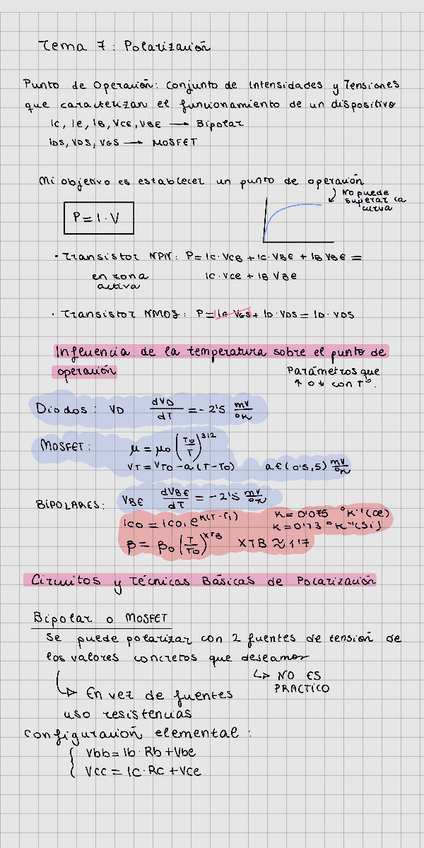 Tema 7: Polarización
Punto de Operación: Conjunto de Intensidades y Tensiones
que caracterizan el funcionamiento de un dispositivo
Ic, Ie, IB, VCE, VBE → Bipolar
IDS, VDS, VGS → MOSFET
Mi objetivo es establecer un punto de operación
No puede
superar la
curva
P = I · V
· Transistor NPN: P = IC · VCB + IC · VBE + IB VBE =
en zona
activa
IC · VCE + IB VBE
· Transistor NMOS: P = IG VGS + ID · VDS = ID · VDS
Influencia de la temperatura sobre el punto de
operación
Parámetros que
↑ o ↓ con Tº.
Diodos: VD dVD/dT = -2'5 mV/ºK
MOSFET: μ = μ0 (T0/T)^3/2
VT = VT0 - a (T - T0) a ∈ (0'5, 5) mV/ºK
BIPOLARES: VBE dVBE/dT = -2'5 mV/ºK
ICO = ICO1 e^K(T-T1) K = 0'075 ºK⁻¹ (Ge)
K = 0'13 ºK⁻¹ (Si)
β = β0 (T/T0)^XTB XTB ≈ 1'7
Circuitos y Técnicas Básicas de Polarización
Bipolar o MOSFET
Se puede polarizar con 2 fuentes de tensión de
los valores concretos que deseamos
↳ NO ES
PRACTICO
↳ En vez de fuentes
uso resistencias
configuración elemental:
Vbb = Ib · Rb + Vbe
Vcc = IC · RC + VCE